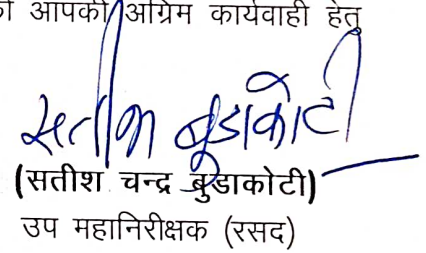 आपकी अग्रिम कार्यवाही हेतु
सतीश बुडाकोटी
(सतीश चन्द्र बुडाकोटी)
उप महानिरीक्षक (रसद)